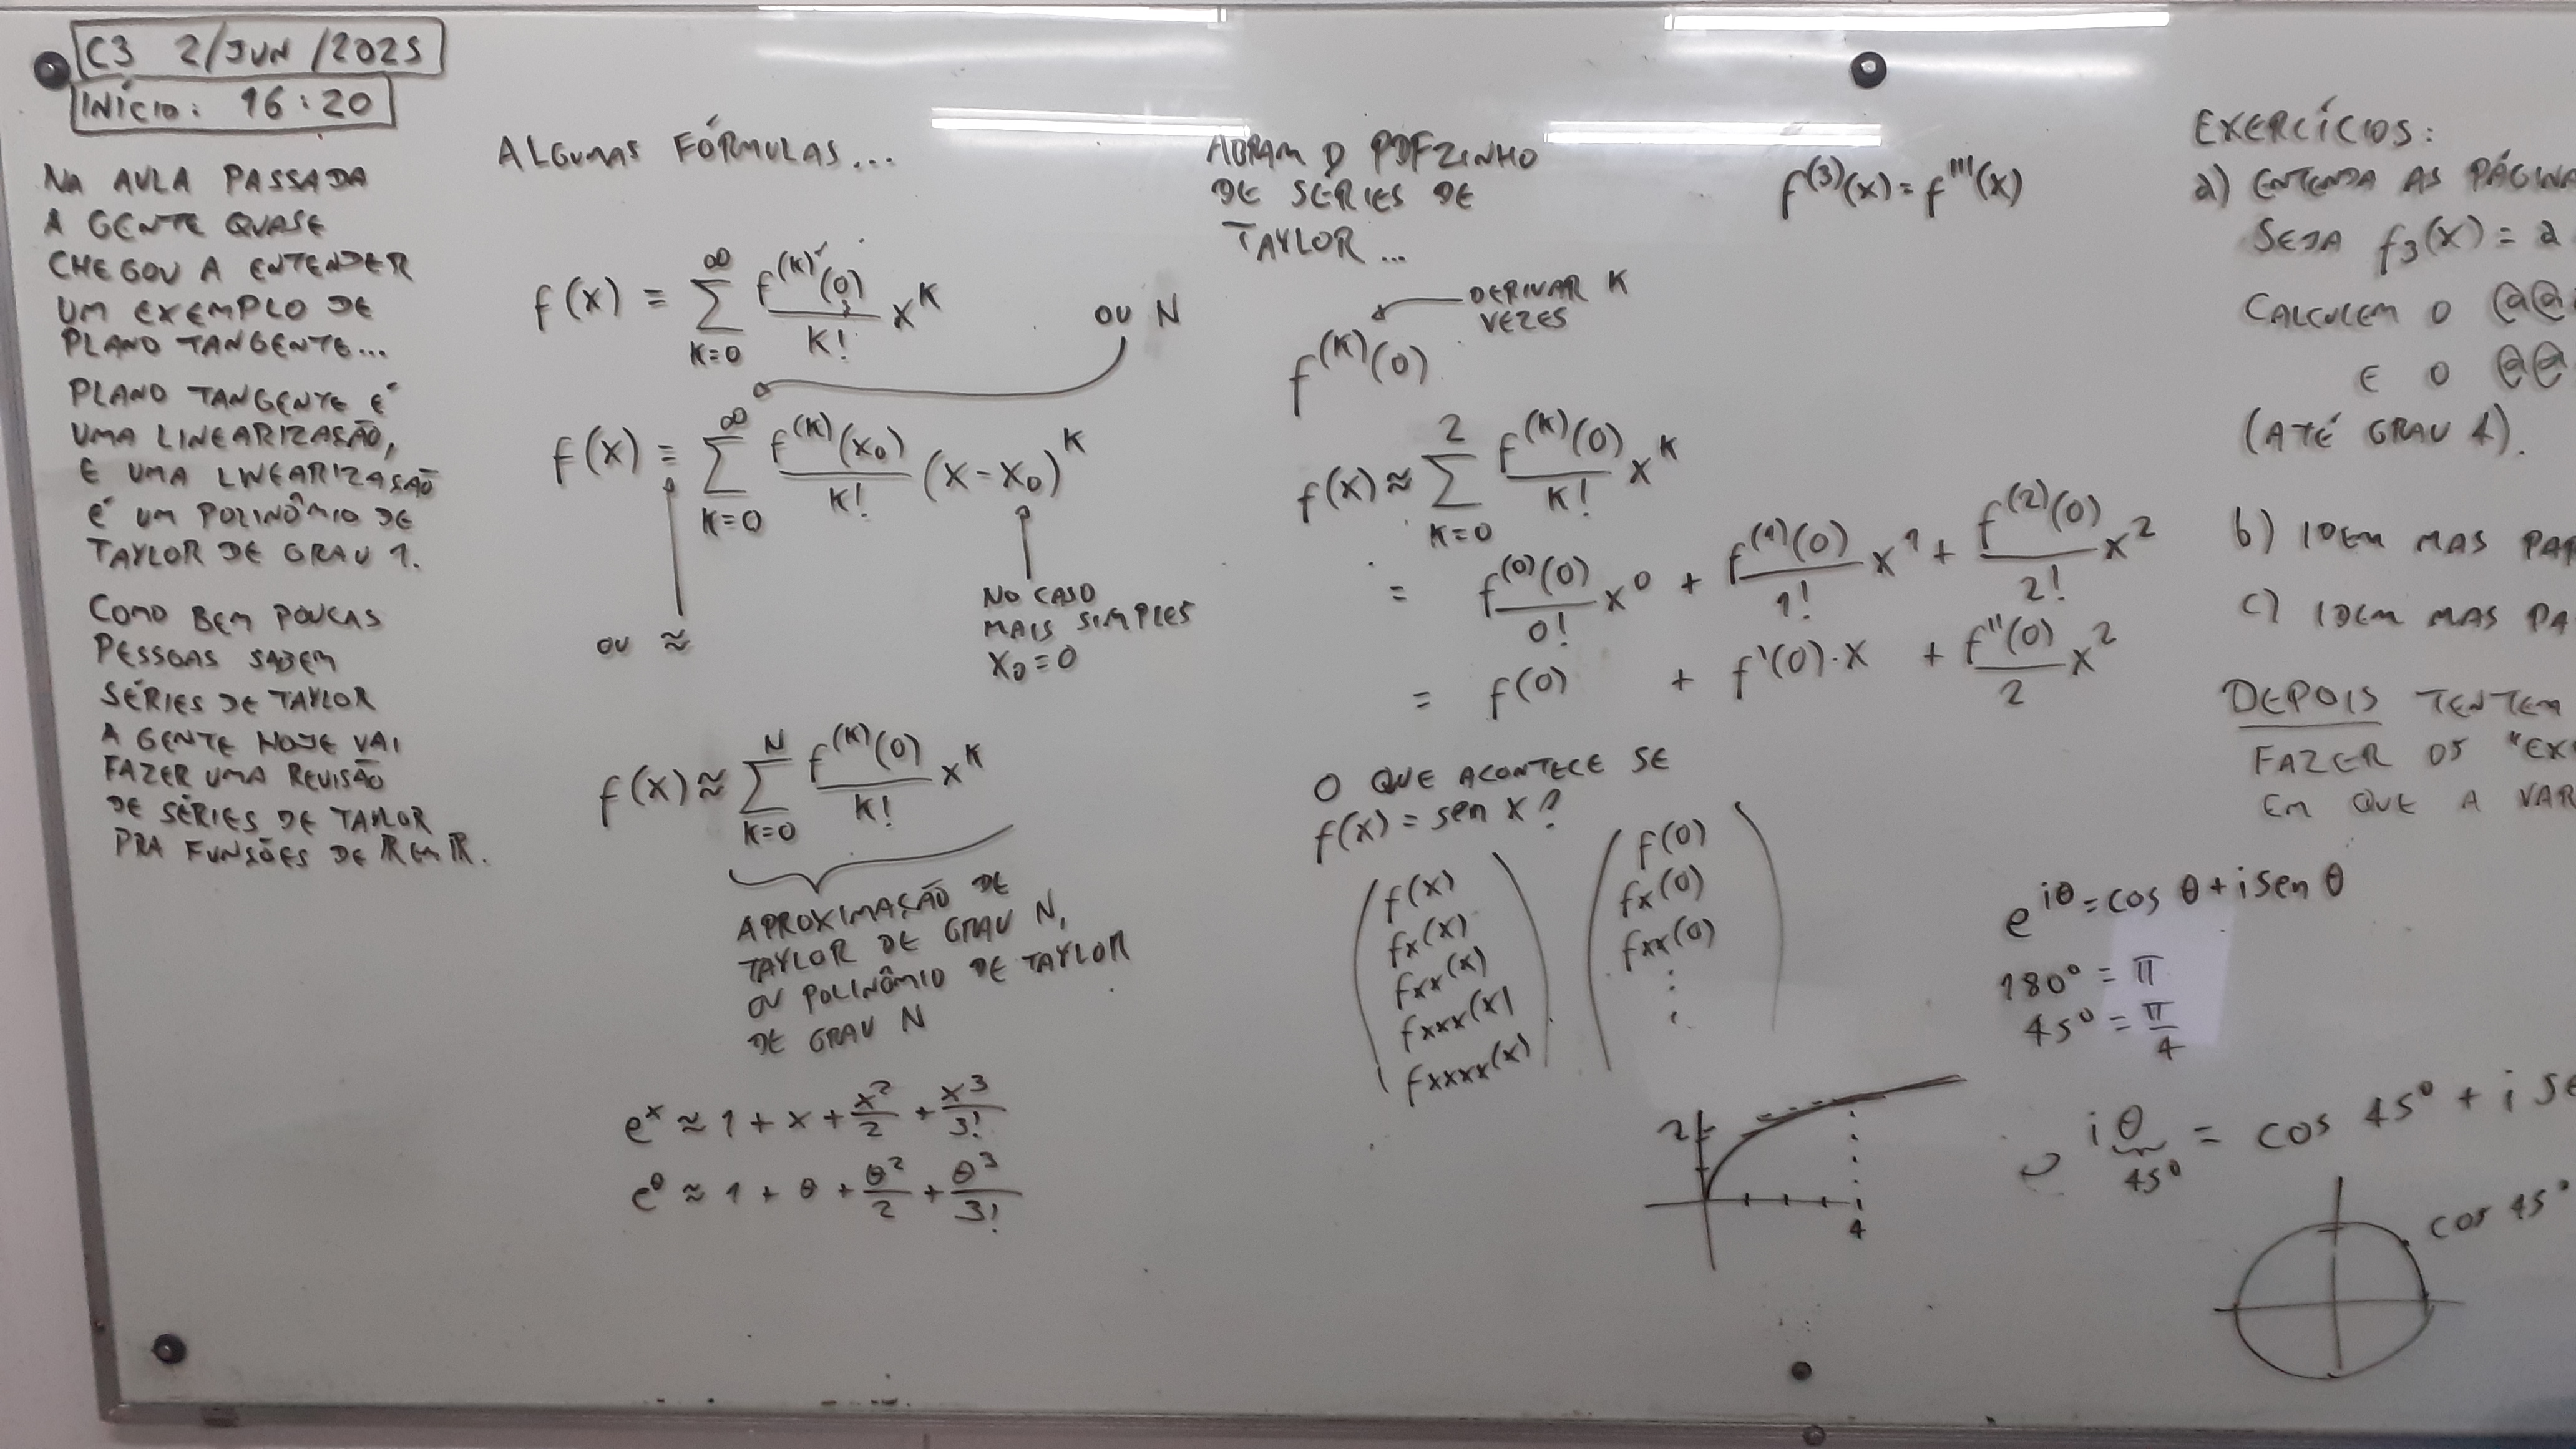 C3 2/JUN/2025
INÍCIO: 16:20
NA AULA PASSADA
A GENTE QUASE
CHEGOU A ENTENDER
UM EXEMPLO DE
PLANO TANGENTE...
PLANO TANGENTE É
UMA LINEARIZAÇÃO,
E UMA LINEARIZAÇÃO
É UM POLINÔMIO DE
TAYLOR DE GRAU 1.
COMO BEM POUCAS
PESSOAS SABEM
SÉRIES DE TAYLOR
A GENTE HOJE VAI
FAZER UMA REVISÃO
DE SÉRIES DE TAYLOR
PRA FUNÇÕES DE ℝ EM ℝ.
ALGUMAS FÓRMULAS...
f(x) = ∑_{K=0}^{∞} \frac{f^{(K)}(0)}{K!} x^K
OU N
f(x) = ∑_{K=0}^{∞} \frac{f^{(K)}(x_0)}{K!} (x-x_0)^K
OU ≈
NO CASO
MAIS SIMPLES
x_0=0
f(x) ≈ ∑_{K=0}^{N} \frac{f^{(K)}(0)}{K!} x^K
APROXIMAÇÃO DE
TAYLOR DE GRAU N,
OU POLINÔMIO DE TAYLOR
DE GRAU N
e^x ≈ 1 + x + \frac{x^2}{2} + \frac{x^3}{3!}
e^θ ≈ 1 + θ + \frac{θ^2}{2} + \frac{θ^3}{3!}
ABRAM O PDFZINHO
DE SÉRIES DE
TAYLOR...
DERIVAR K
VEZES
f^{(K)}(0)
f(x) ≈ ∑_{K=0}^{2} \frac{f^{(K)}(0)}{K!} x^K
= \frac{f^{(0)}(0)}{0!} x^0 + \frac{f^{(1)}(0)}{1!} x^1 + \frac{f^{(2)}(0)}{2!} x^2
= f(0) + f'(0)·x + \frac{f''(0)}{2} x^2
O QUE ACONTECE SE
f(x) = sen x?
f(x)
fx(x)
fxx(x)
fxxx(x)
fxxxx(x)
f(0)
fx(0)
fxx(0)
⋮
2
4
f^{(3)}(x) = f'''(x)
EXERCÍCIOS:
a) ENTENDA AS PÁGINA
SEJA f_3(x) = a
CALCULEM O
E O
(ATÉ GRAU 4).
b) IDEM MAS PAR
c) IDEM MAS PA
DEPOIS TENTEM
FAZER OS "EX
EM QUE A VAR
e^{iθ} = cos θ + i sen θ
180° = π
45° = \frac{π}{4}
e^{iθ} = cos 45° + i se
45°
cos 45°